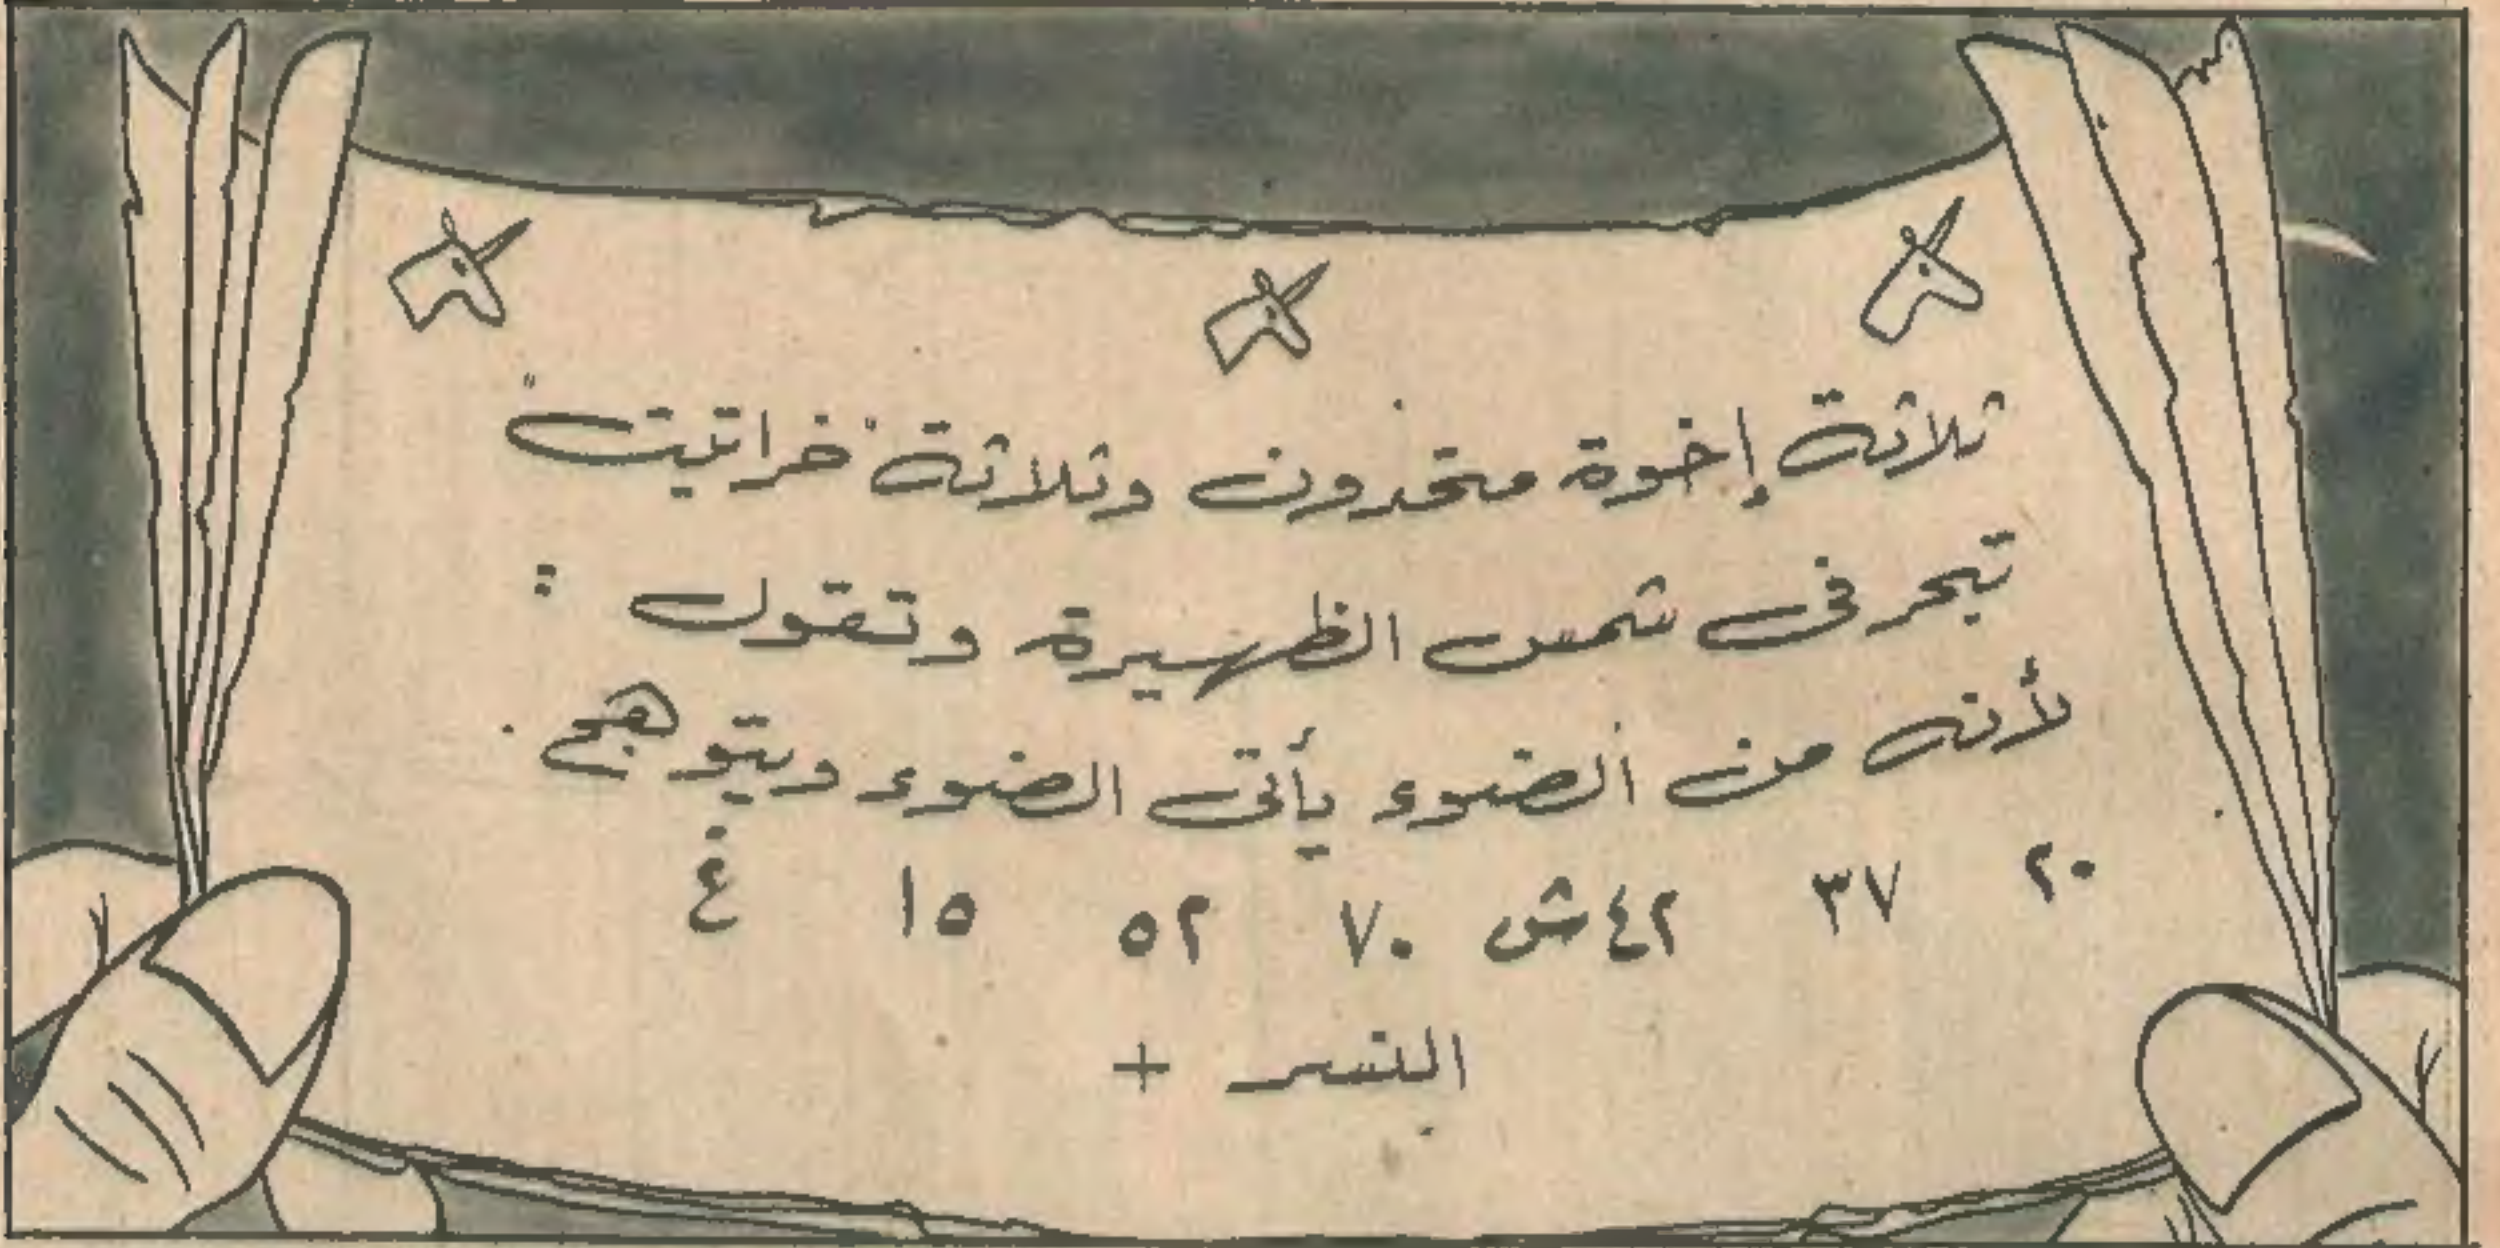 ثلاثة إخوة متحدون وثلاثة "خراتيت"
تبحر فى شمس الظهيرة وتقول :
لأنه من الضوء يأتى الضوء ويتوهج .
٢٠ ٣٧ ٤٢ش ٧٠ ٥٢ ١٥ غ
النسر +